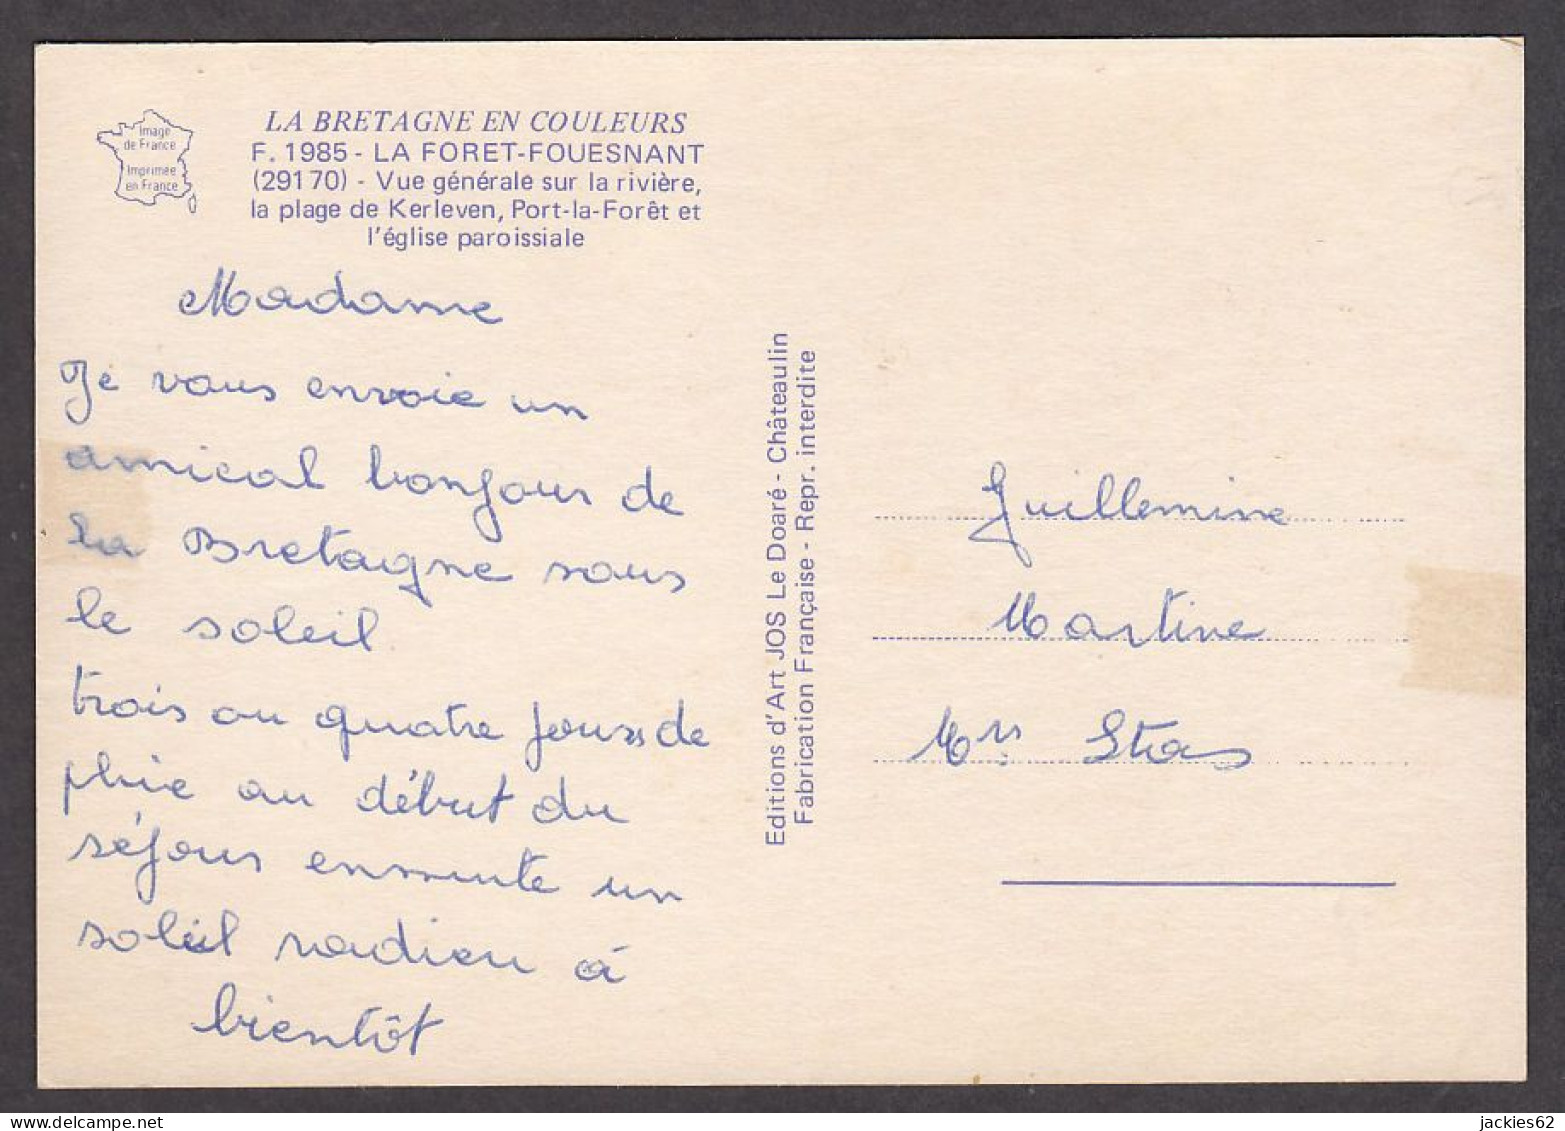 Image
de France
Imprimée
en France
LA BRETAGNE EN COULEURS
F. 1985 - LA FORET-FOUESNANT
(29170) - Vue générale sur la rivière,
la plage de Kerleven, Port-la-Forêt et
l'église paroissiale
Madame
Je vous envoie un
amical bonjour de
la Bretagne sous
le soleil
trois ou quatre jours de
pluie au début du
séjour ensuite un
soleil radieu à
bientôt
Editions d'Art JOS Le Doaré - Châteaulin
Fabrication Française - Repr. interdite
Guillemine
Martine
Stas
jackies62